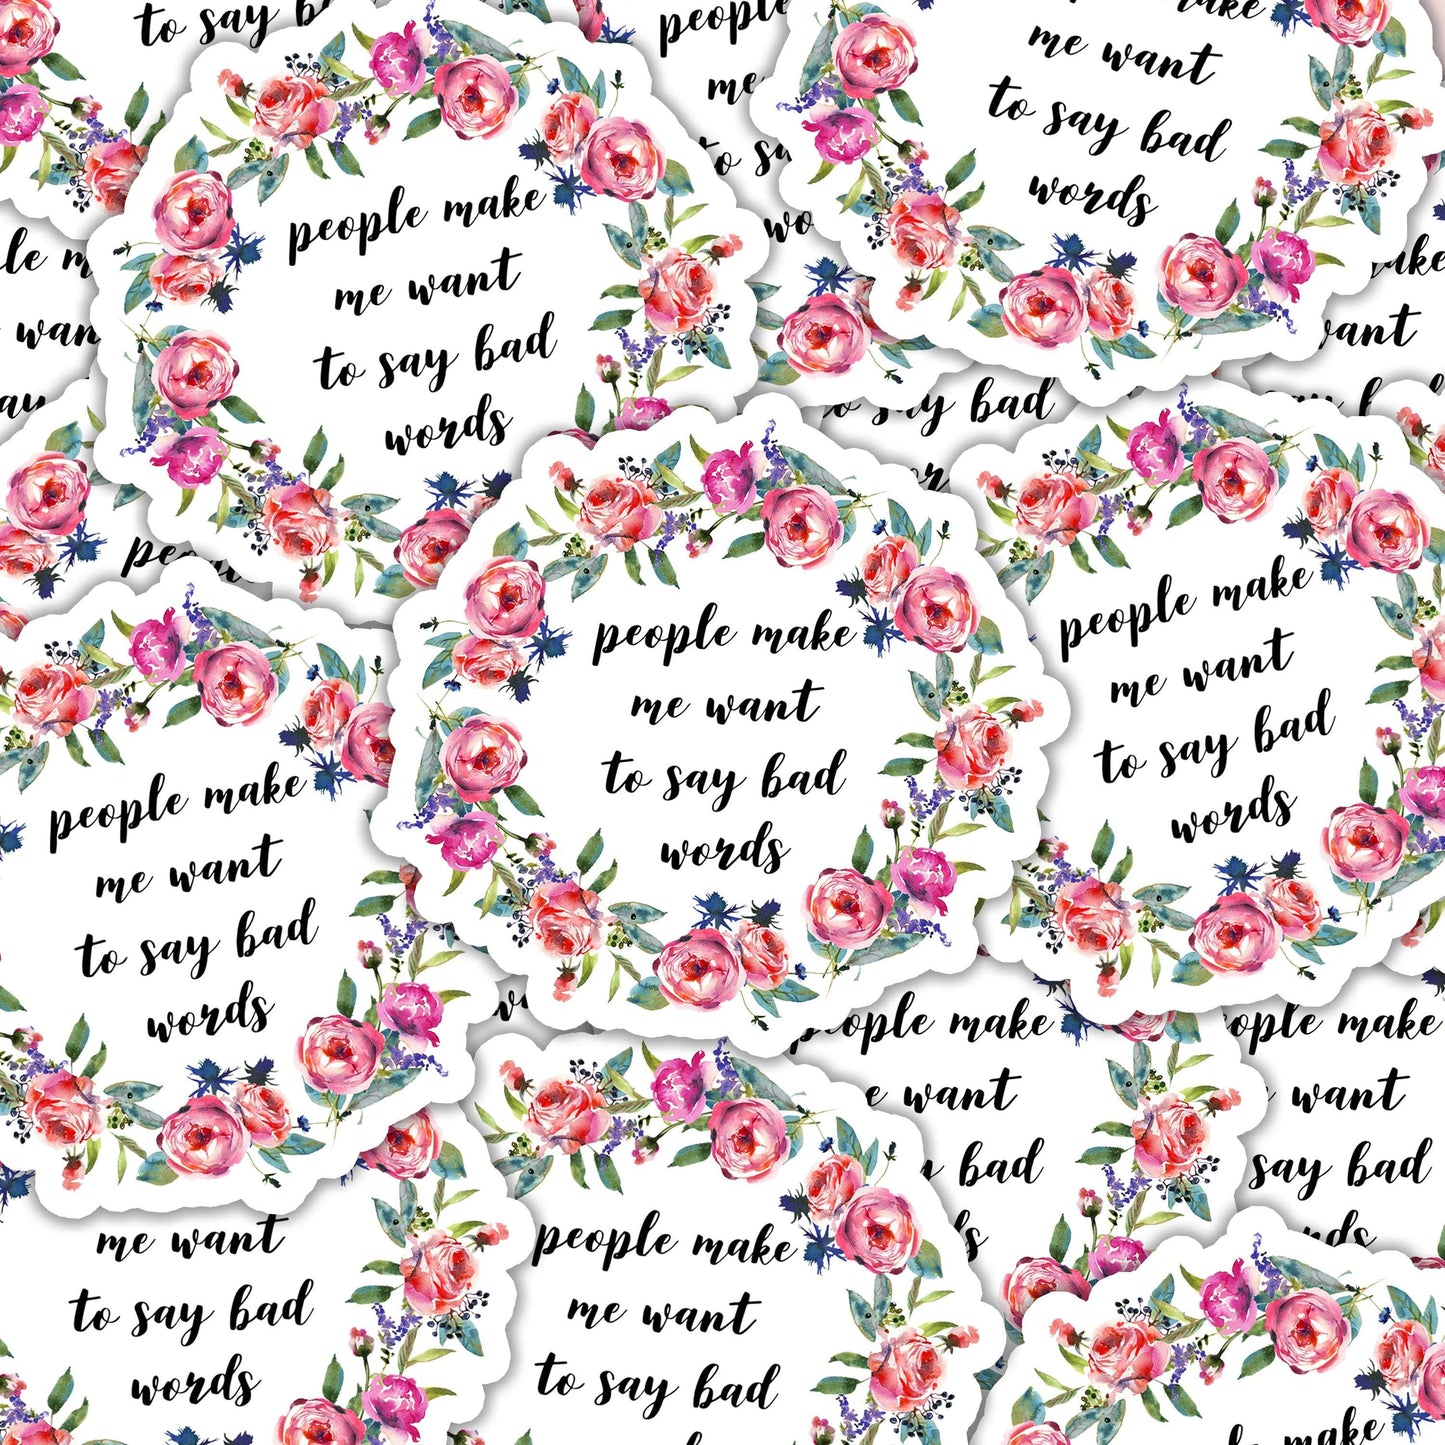 to say b
people make
me want
to say bad
words
people
me
to sa
wo
make
me want
to say bad
words
le m
wan
ay
make
want
say b
to say bad
wor
people make
me want
to say bad
words
people make
me want
to say bad
words
peo
people make
me want
to say bad
words
people make
want
bad
people make
want
say bad
me want
to say bad
words
people make
me want
to say bad
make